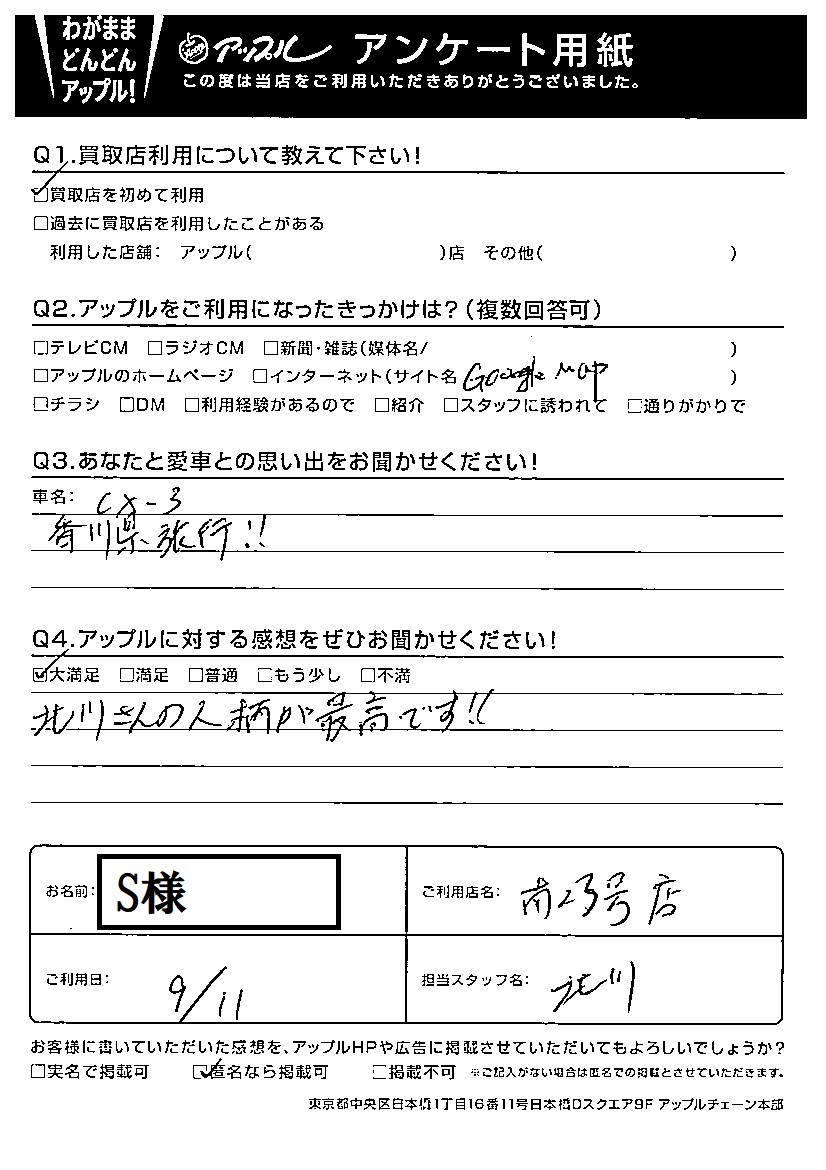 わがまま
どんどん
アップル!
アップル アンケート用紙
この度は当店をご利用いただきありがとうございました。
Q1.買取店利用について教えて下さい!
☑買取店を初めて利用
□過去に買取店を利用したことがある
利用した店舗: アップル( )店 その他( )
Q2.アップルをご利用になったきっかけは?(複数回答可)
□テレビCM □ラジオCM □新聞・雑誌(媒体名/ )
□アップルのホームページ □インターネット(サイト名 Google Map )
□チラシ □DM □利用経験があるので □紹介 □スタッフに誘われて □通りがかりで
Q3.あなたと愛車との思い出をお聞かせください!
車名: CX-3
香川県旅行!!
Q4.アップルに対する感想をぜひお聞かせください!
☑大満足 □満足 □普通 □もう少し □不満
北川さんの人柄が最高です!!
お名前: S様
ご利用店名: 南23号店
ご利用日: 9/11
担当スタッフ名: 北川
お客様に書いていただいた感想を、アップルHPや広告に掲載させていただいてもよろしいでしょうか?
□実名で掲載可 ☑匿名なら掲載可 □掲載不可 ※ご記入がない場合は匿名での掲載とさせていただきます。
東京都中央区日本橋1丁目16番11号日本橋Dスクエア9F アップルチェーン本部